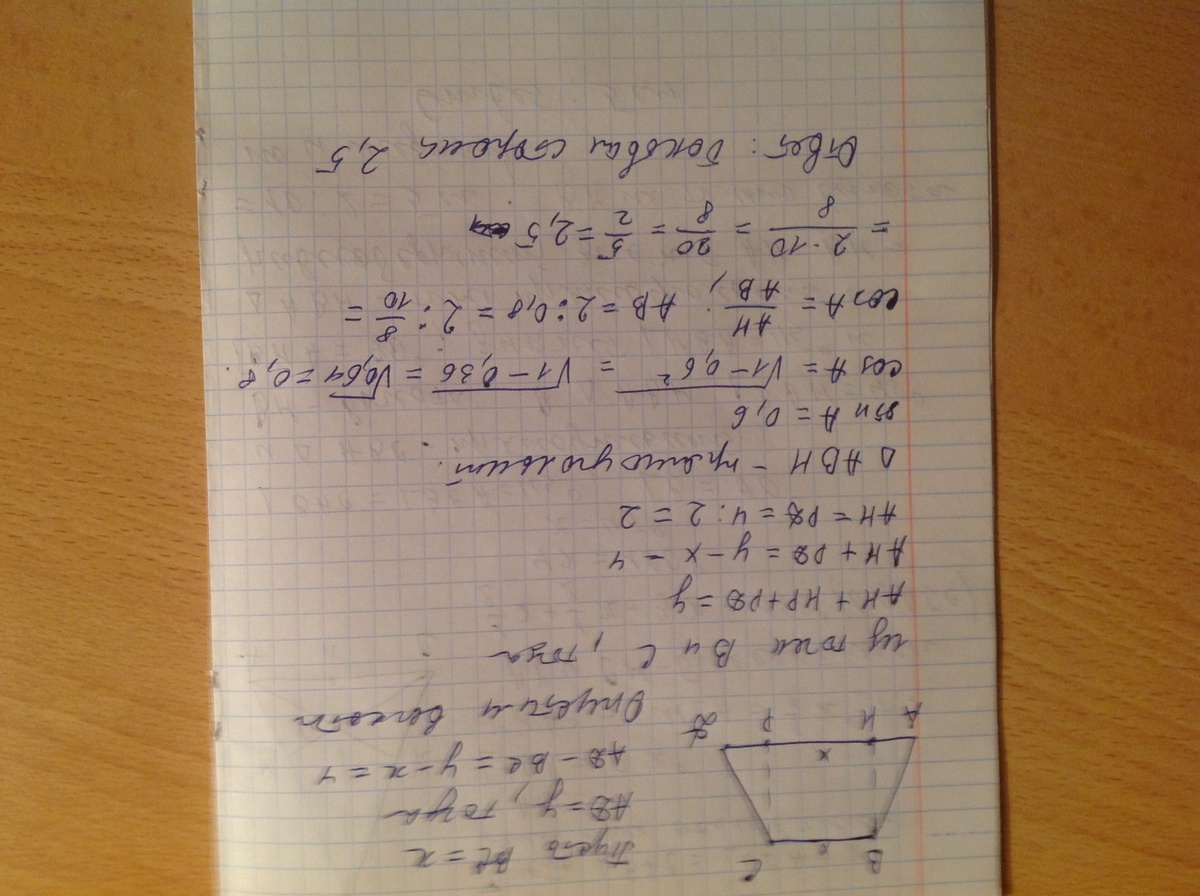 Пусть BC = x
AD = y, тогда
AD - BC = y - x = 4
Опустим высоты
из точек B и C, тогда
B
C
x
x
A
H
P
D
AH + HP + PD = y
AH + PD = y - x = 4
AH = PD = 4 : 2 = 2
Δ ABH - прямоугольный.
sin A = 0,6
cos A = √1-0,6² = √1-0,36 = √0,64 = 0,8.
cos A = AH/AB; AB = 2 : 0,8 = 2 : 8/10 =
= 2·10/8 = 20/8 = 5/2 = 2,5
Ответ: боковая сторона 2,5